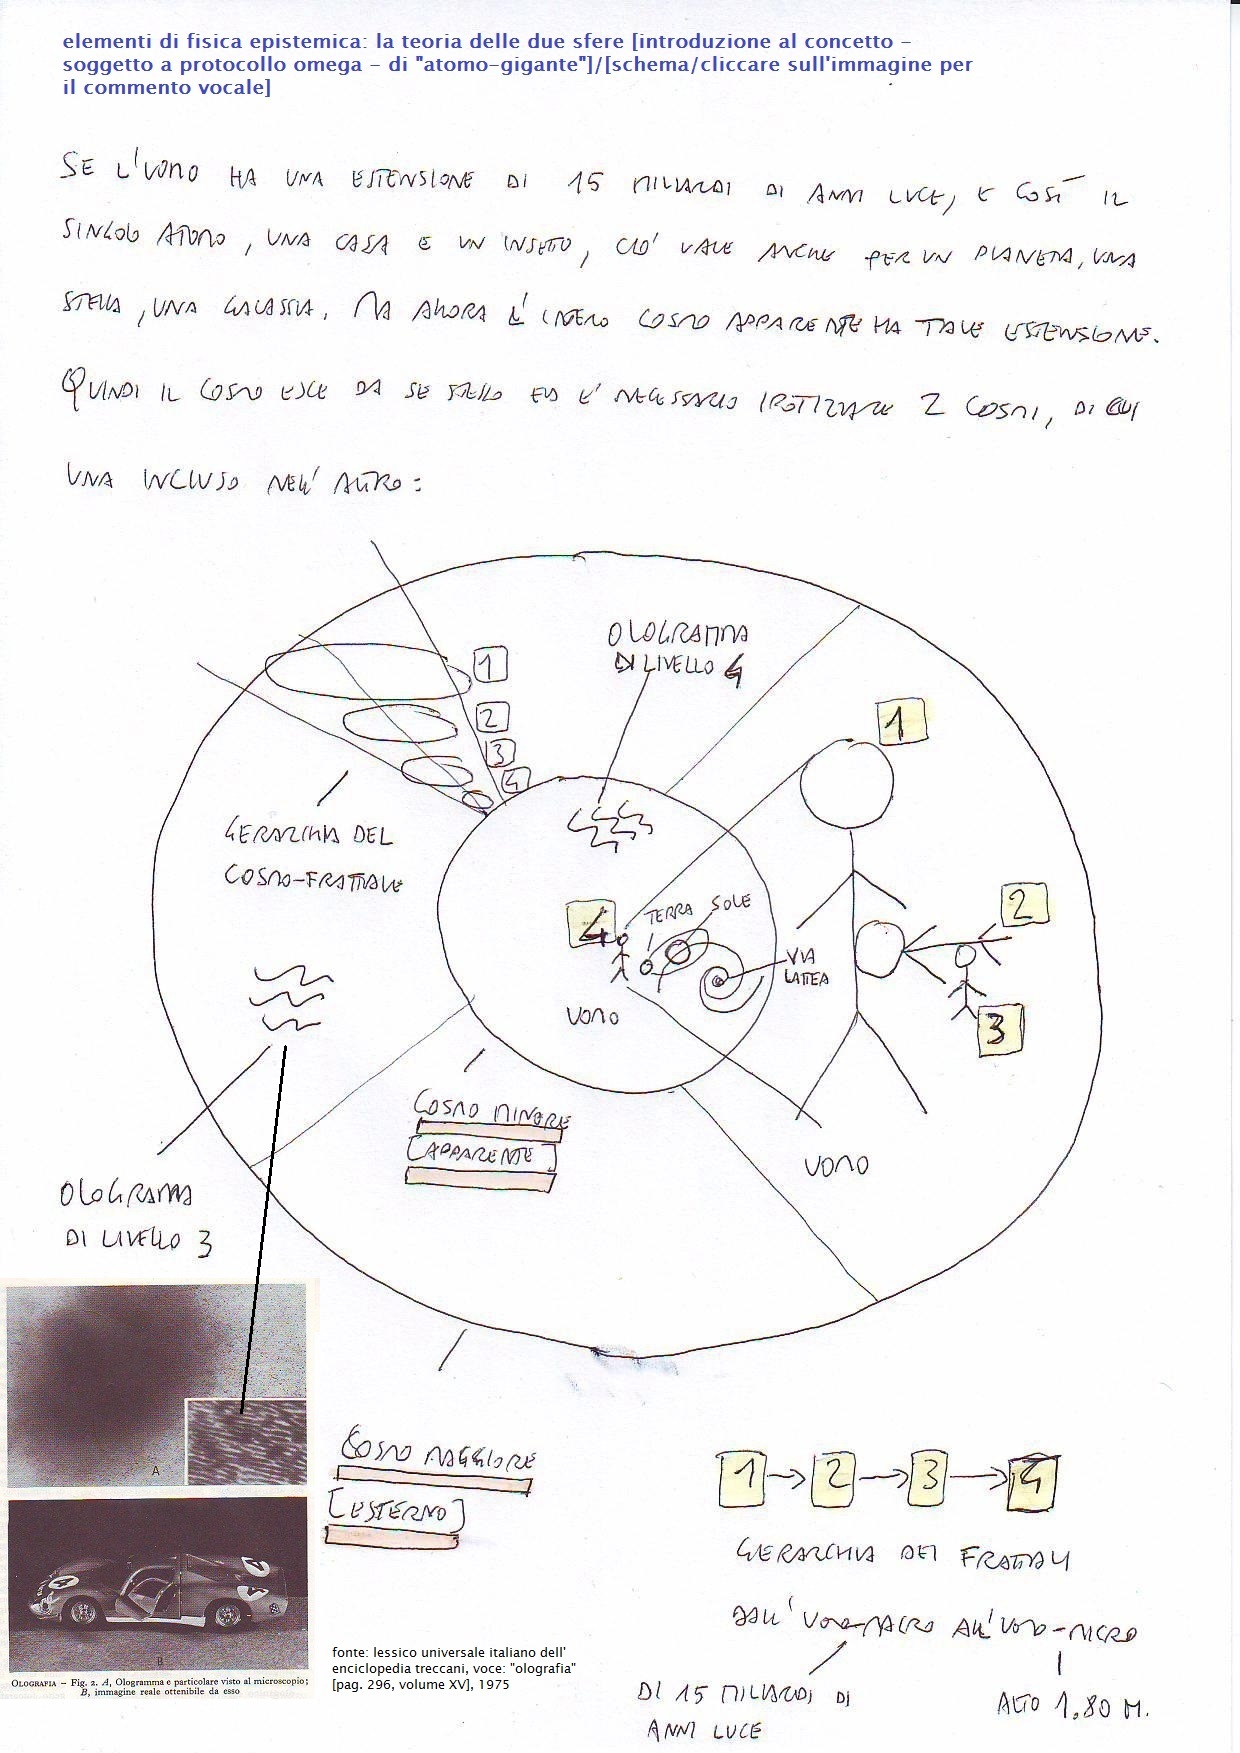 elementi di fisica epistemica: la teoria delle due sfere [introduzione al concetto -
soggetto a protocollo omega - di "atomo-gigante"]/[schema/cliccare sull'immagine per
il commento vocale]
SE L'UOMO HA UNA ESTENSIONE DI 15 MILIARDI DI ANNI LUCE, E COSÌ IL
SINGOLO ATOMO, UNA CASA E UN INSETTO, CIO' VALE ANCHE PER UN PIANETA, UNA
STELLA, UNA GALASSIA. MA ALLORA L'INTERO COSMO APPARENTE HA TALE ESTENSIONE.
QUINDI IL COSMO ESCE DA SE STESSO ED E' NECESSARIO IPOTIZZARE 2 COSMI, DI CUI
UNA INCLUSO NELL'ALTRO:
OLOGRAMMA
DI LIVELLO 4
1
2
3
4
GERARCHIA DEL
COSMO-FRATTALE
1
2
3
4
TERRA
SOLE
VIA
LATTEA
UOMO
UOMO
COSMO MINORE
[APPARENTE]
OLOGRAMMA
DI LIVELLO 3
A
B
OLOGRAFIA – Fig. 2. A, Ologramma e particolare visto al microscopio;
B, immagine reale ottenibile da esso
COSMO MAGGIORE
[ESTERNO]
fonte: lessico universale italiano dell'
enciclopedia treccani, voce: "olografia"
[pag. 296, volume XV], 1975
1 → 2 → 3 → 4
GERARCHIA DEI FRATTALI
DALL'UOMO-MACRO ALL'UOMO-MICRO
DI 15 MILIARDI DI
ANNI LUCE
ALTO 1,80 M.